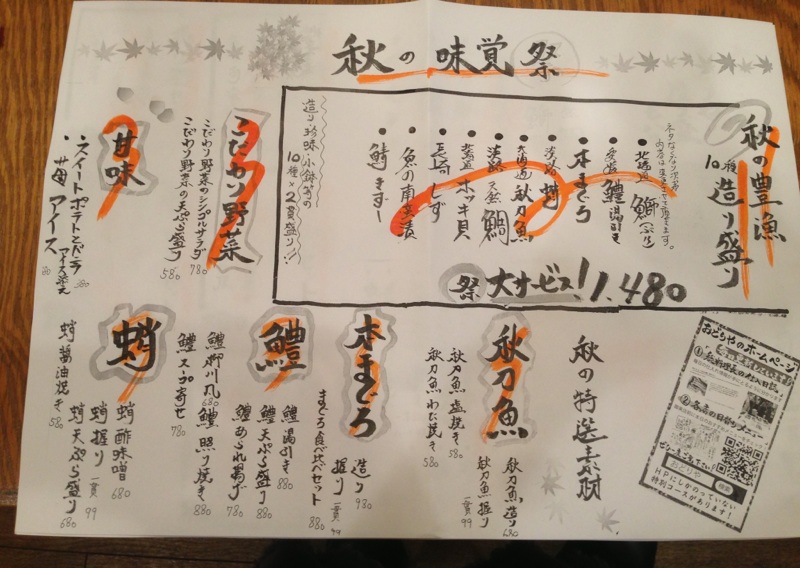 秋の味覚祭
秋の豊漁
10種造り盛り
ネタはその日の入荷次第
● 北海道 鰤(ぶり)
● 愛媛 鱧湯引き
● 本まぐろ
● 淡路 蛸
● 北海道 秋刀魚
● 淡路 天然 鯛
● 北海道 ホッキ貝
● 長崎 しず
● 魚の南蛮漬
● 鯖きずし
造り珍味小鉢等の
10種×2貫盛り!!
祭 大サービス! 1,480
こだわり野菜
こだわり野菜のシンプルサラダ 780
こだわり野菜の天ぷら盛り 580
甘味
スイートポテトとバニラ
アイス添え 380
苺アイス
秋の特選素材
秋刀魚
秋刀魚造り 680
秋刀魚握り 一貫 99
秋刀魚塩焼き 580
秋刀魚わた焼き 580
本まぐろ
造り 980
握り 一貫 99
まぐろ食べ比べセット 880
鱧
鱧湯引き 880
鱧天ぷら盛り 880
鱧あられ揚げ 780
鱧照り焼き 880
鱧柳川風 680
鱧スープ寄せ 780
蛸
蛸酢味噌 680
蛸握り 一貫 99
蛸天ぷら盛り 680
蛸醤油焼き 580
おどりやのホームページ
①
②各店の日替りメニュー
おどりや 検索
HPにしかのっていない
特別コースがあります。